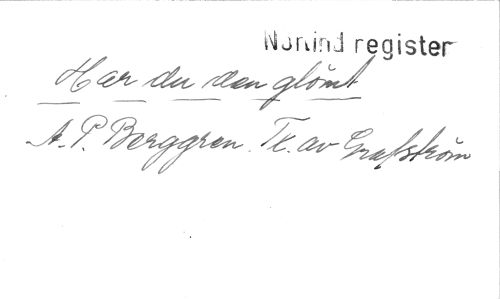 Norlind register
Har du den glömt
A. P. Berggren. Tx. av Grafström